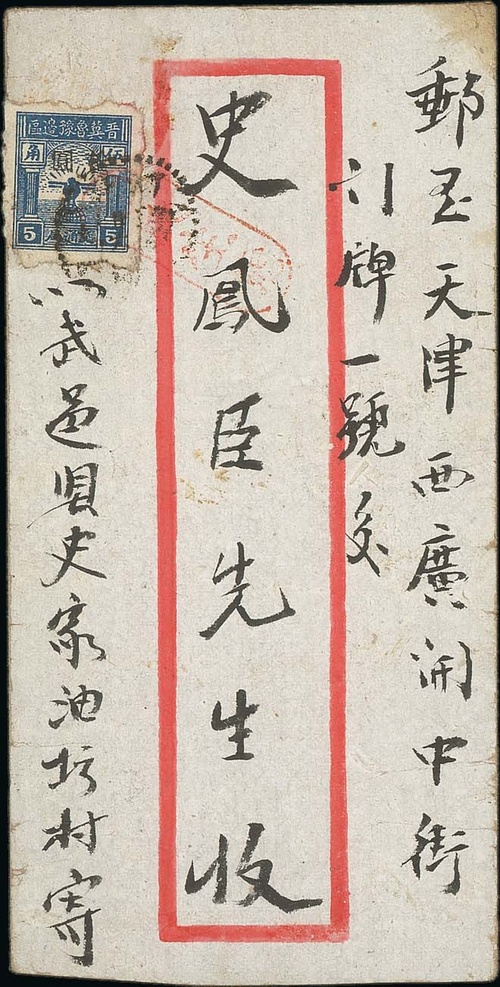 郵至天津西廣開中街
门牌一號交
史鳳臣先生收
武邑县史家油坊村寄
晋冀魯豫邊區
伍角
5 5